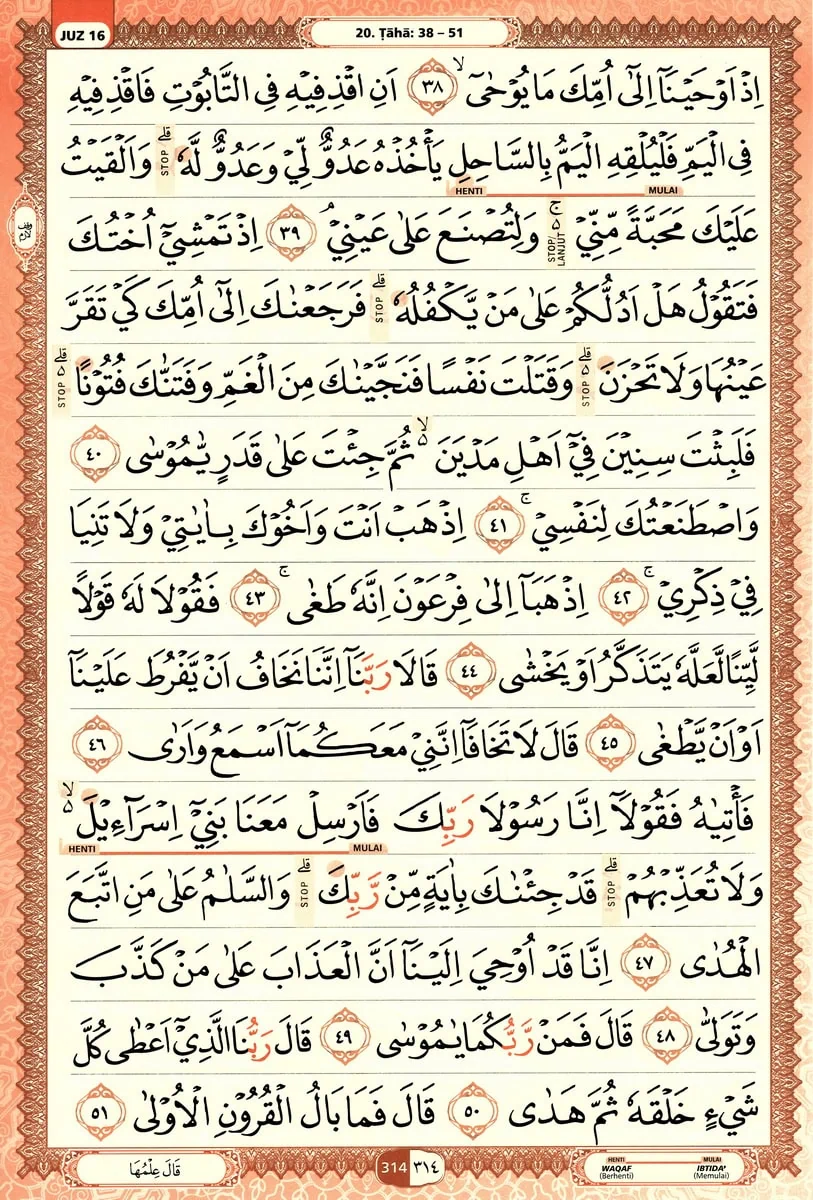 JUZ 16
20. Ṭāhā: 38 – 51
اِذْ اَوْحَيْنَآ اِلٰٓى اُمِّكَ مَا يُوْحٰىٓ ۙ ٣٨ اَنِ اقْذِفِيْهِ فِى التَّابُوْتِ فَاقْذِفِيْهِ
فِى الْيَمِّ فَلْيُلْقِهِ الْيَمُّ بِالسَّاحِلِ يَأْخُذْهُ عَدُوٌّ لِّيْ وَعَدُوٌّ لَّهٗ ۗ وَاَلْقَيْتُ
STOP
HENTI MULAI
عَلَيْكَ مَحَبَّةً مِّنِّيْ ەۚ وَلِتُصْنَعَ عَلٰى عَيْنِيْ ۘ ٣٩ اِذْ تَمْشِيْٓ اُخْتُكَ
STOP/LANJUT
فَتَقُوْلُ هَلْ اَدُلُّكُمْ عَلٰى مَنْ يَّكْفُلُهٗ ۗ فَرَجَعْنٰكَ اِلٰٓى اُمِّكَ كَيْ تَقَرَّ
STOP
عَيْنُهَا وَلَا تَحْزَنَ ەۗ وَقَتَلْتَ نَفْسًا فَنَجَّيْنٰكَ مِنَ الْغَمِّ وَفَتَنّٰكَ فُتُوْنًا ەۗ
STOP STOP
فَلَبِثْتَ سِنِيْنَ فِيْٓ اَهْلِ مَدْيَنَ ەۙ ثُمَّ جِئْتَ عَلٰى قَدَرٍ يّٰمُوْسٰى ٤٠
وَاصْطَنَعْتُكَ لِنَفْسِيْ ۚ ٤١ اِذْهَبْ اَنْتَ وَاَخُوْكَ بِاٰيٰتِيْ وَلَا تَنِيَا
فِيْ ذِكْرِيْ ۚ ٤٢ اِذْهَبَآ اِلٰى فِرْعَوْنَ اِنَّهٗ طَغٰى ۚ ٤٣ فَقُوْلَا لَهٗ قَوْلًا
لَّيِّنًا لَّعَلَّهٗ يَتَذَكَّرُ اَوْ يَخْشٰى ٤٤ قَالَا رَبَّنَآ اِنَّنَا نَخَافُ اَنْ يَّفْرُطَ عَلَيْنَآ
اَوْ اَنْ يَّطْغٰى ٤٥ قَالَ لَا تَخَافَآ اِنَّنِيْ مَعَكُمَآ اَسْمَعُ وَاَرٰى ٤٦
فَأْتِيٰهُ فَقُوْلَآ اِنَّا رَسُوْلَا رَبِّكَ فَاَرْسِلْ مَعَنَا بَنِيْٓ اِسْرَاۤءِيْلَ ەۙ
HENTI MULAI
وَلَا تُعَذِّبْهُمْ ۗ قَدْ جِئْنٰكَ بِاٰيَةٍ مِّنْ رَّبِّكَ ۗ وَالسَّلٰمُ عَلٰى مَنِ اتَّبَعَ
STOP STOP
الْهُدٰى ٤٧ اِنَّا قَدْ اُوْحِيَ اِلَيْنَآ اَنَّ الْعَذَابَ عَلٰى مَنْ كَذَّبَ
وَتَوَلّٰى ٤٨ قَالَ فَمَنْ رَّبُّكُمَا يٰمُوْسٰى ٤٩ قَالَ رَبُّنَا الَّذِيْٓ اَعْطٰى كُلَّ
شَيْءٍ خَلْقَهٗ ثُمَّ هَدٰى ٥٠ قَالَ فَمَا بَالُ الْقُرُوْنِ الْاُوْلٰى ٥١
قَالَ عِلْمُهَا
314 ٣١٤
HENTI MULAI
WAQAF IBTIDA'
(Berhenti) (Memulai)